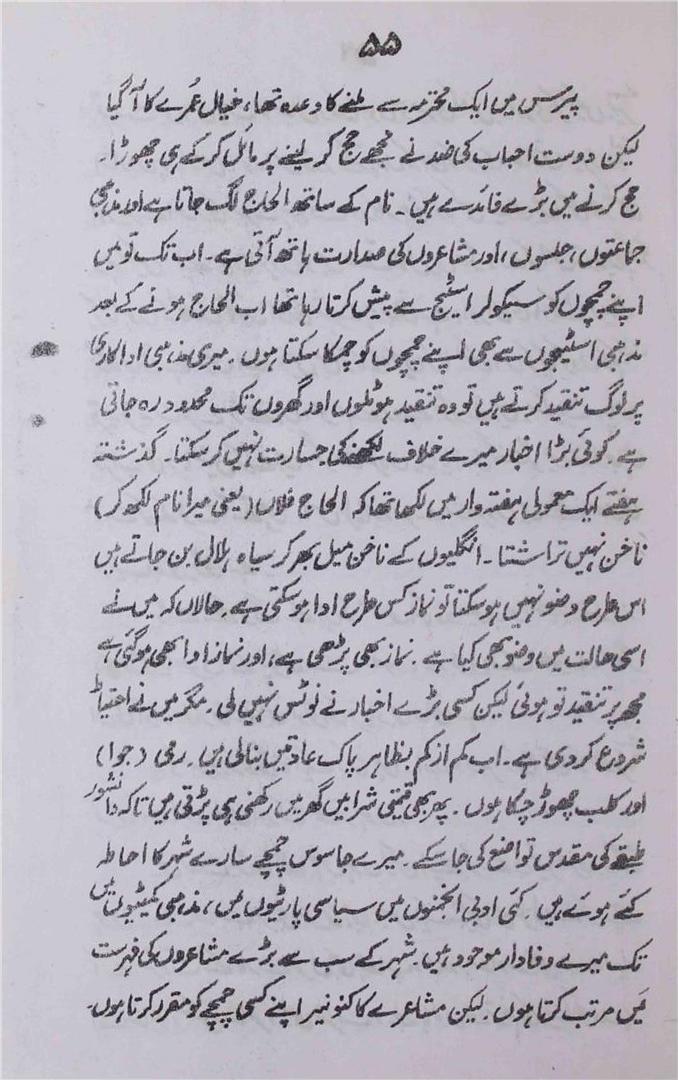 ۵۵
پیرس میں ایک محترمہ سے ملنے کا وعدہ تھا، خیال عُمرے کا آ گیا
لیکن دوست احباب کی ضد نے مجھے حج کر لینے پر مائل کر کے ہی چھوڑا۔
حج کرنے میں بڑے فائدے ہیں۔ نام کے ساتھ الحاج لگ جاتا ہے اور مذہبی
جماعتوں، جلسوں، اور مشاعروں کی صدارت ہاتھ آتی ہے۔ اب تک تو میں
اپنے چمچوں کو سیکولر اسٹیج سے پیش کرتا رہا تھا اب الحاج ہونے کے بعد
مذہبی اسٹیجوں سے بھی اپنے چمچوں کو چمکا سکتا ہوں۔ میری مذہبی اداکاری
پر لوگ تنقید کرتے ہیں تو وہ تنقید ہوٹلوں اور گھروں تک محدود رہ جاتی
ہے۔ کوئی بڑا اخبار میرے خلاف لکھنے کی جسارت نہیں کر سکتا۔ گذشتہ
ہفتے ایک معمولی ہفتہ وار میں لکھا تھا کہ الحاج فلاں (یعنی میرا نام لکھ کر)
ناخن نہیں تراشتا۔ انگلیوں کے ناخن میل بھر کر سیاہ ہلال بن جاتے ہیں
اس طرح وضو نہیں ہو سکتا تو نماز کس طرح ادا ہو سکتی ہے۔ حالاں کہ میں نے
اسی حالت میں وضو بھی کیا ہے۔ نماز بھی پڑھی ہے، اور نماز ادا بھی ہو گئی ہے
مجھ پر تنقید تو ہوئی لیکن کسی بڑے اخبار نے نوٹس نہیں لی۔ مگر میں نے احتیاطاً
شروع کر دی ہے۔ اب کم از کم بظاہر پاک عادتیں بنا لی ہیں۔ رمی (جوا)
اور کلب چھوڑ چکا ہوں۔ پھر بھی قیمتی شرابیں گھر میں رکھنی ہی پڑتی ہیں تاکہ دانشور
طبقے کی مقدس تواضع کی جا سکے۔ میرے جاسوس چمچے سارے شہر کا احاطہ
کئے ہوئے ہیں۔ کئی ادبی انجمنوں میں سیاسی پارٹیوں میں، مذہبی کمیٹیوں میں
تک میرے وفادار موجود ہیں۔ شہر کے سب سے بڑے مشاعروں کی فہرست
میں مرتب کرتا ہوں۔ لیکن مشاعرے کا کنوینر اپنے کسی چمچے کو مقرر کرتا ہوں۔